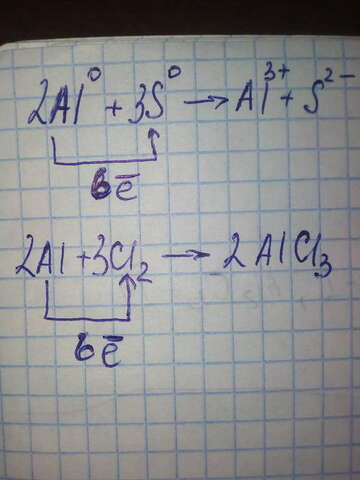 2Al⁰ + 3S⁰ → Al³⁺ + S²⁻
6ē
2Al + 3Cl₂ → 2AlCl₃
6ē